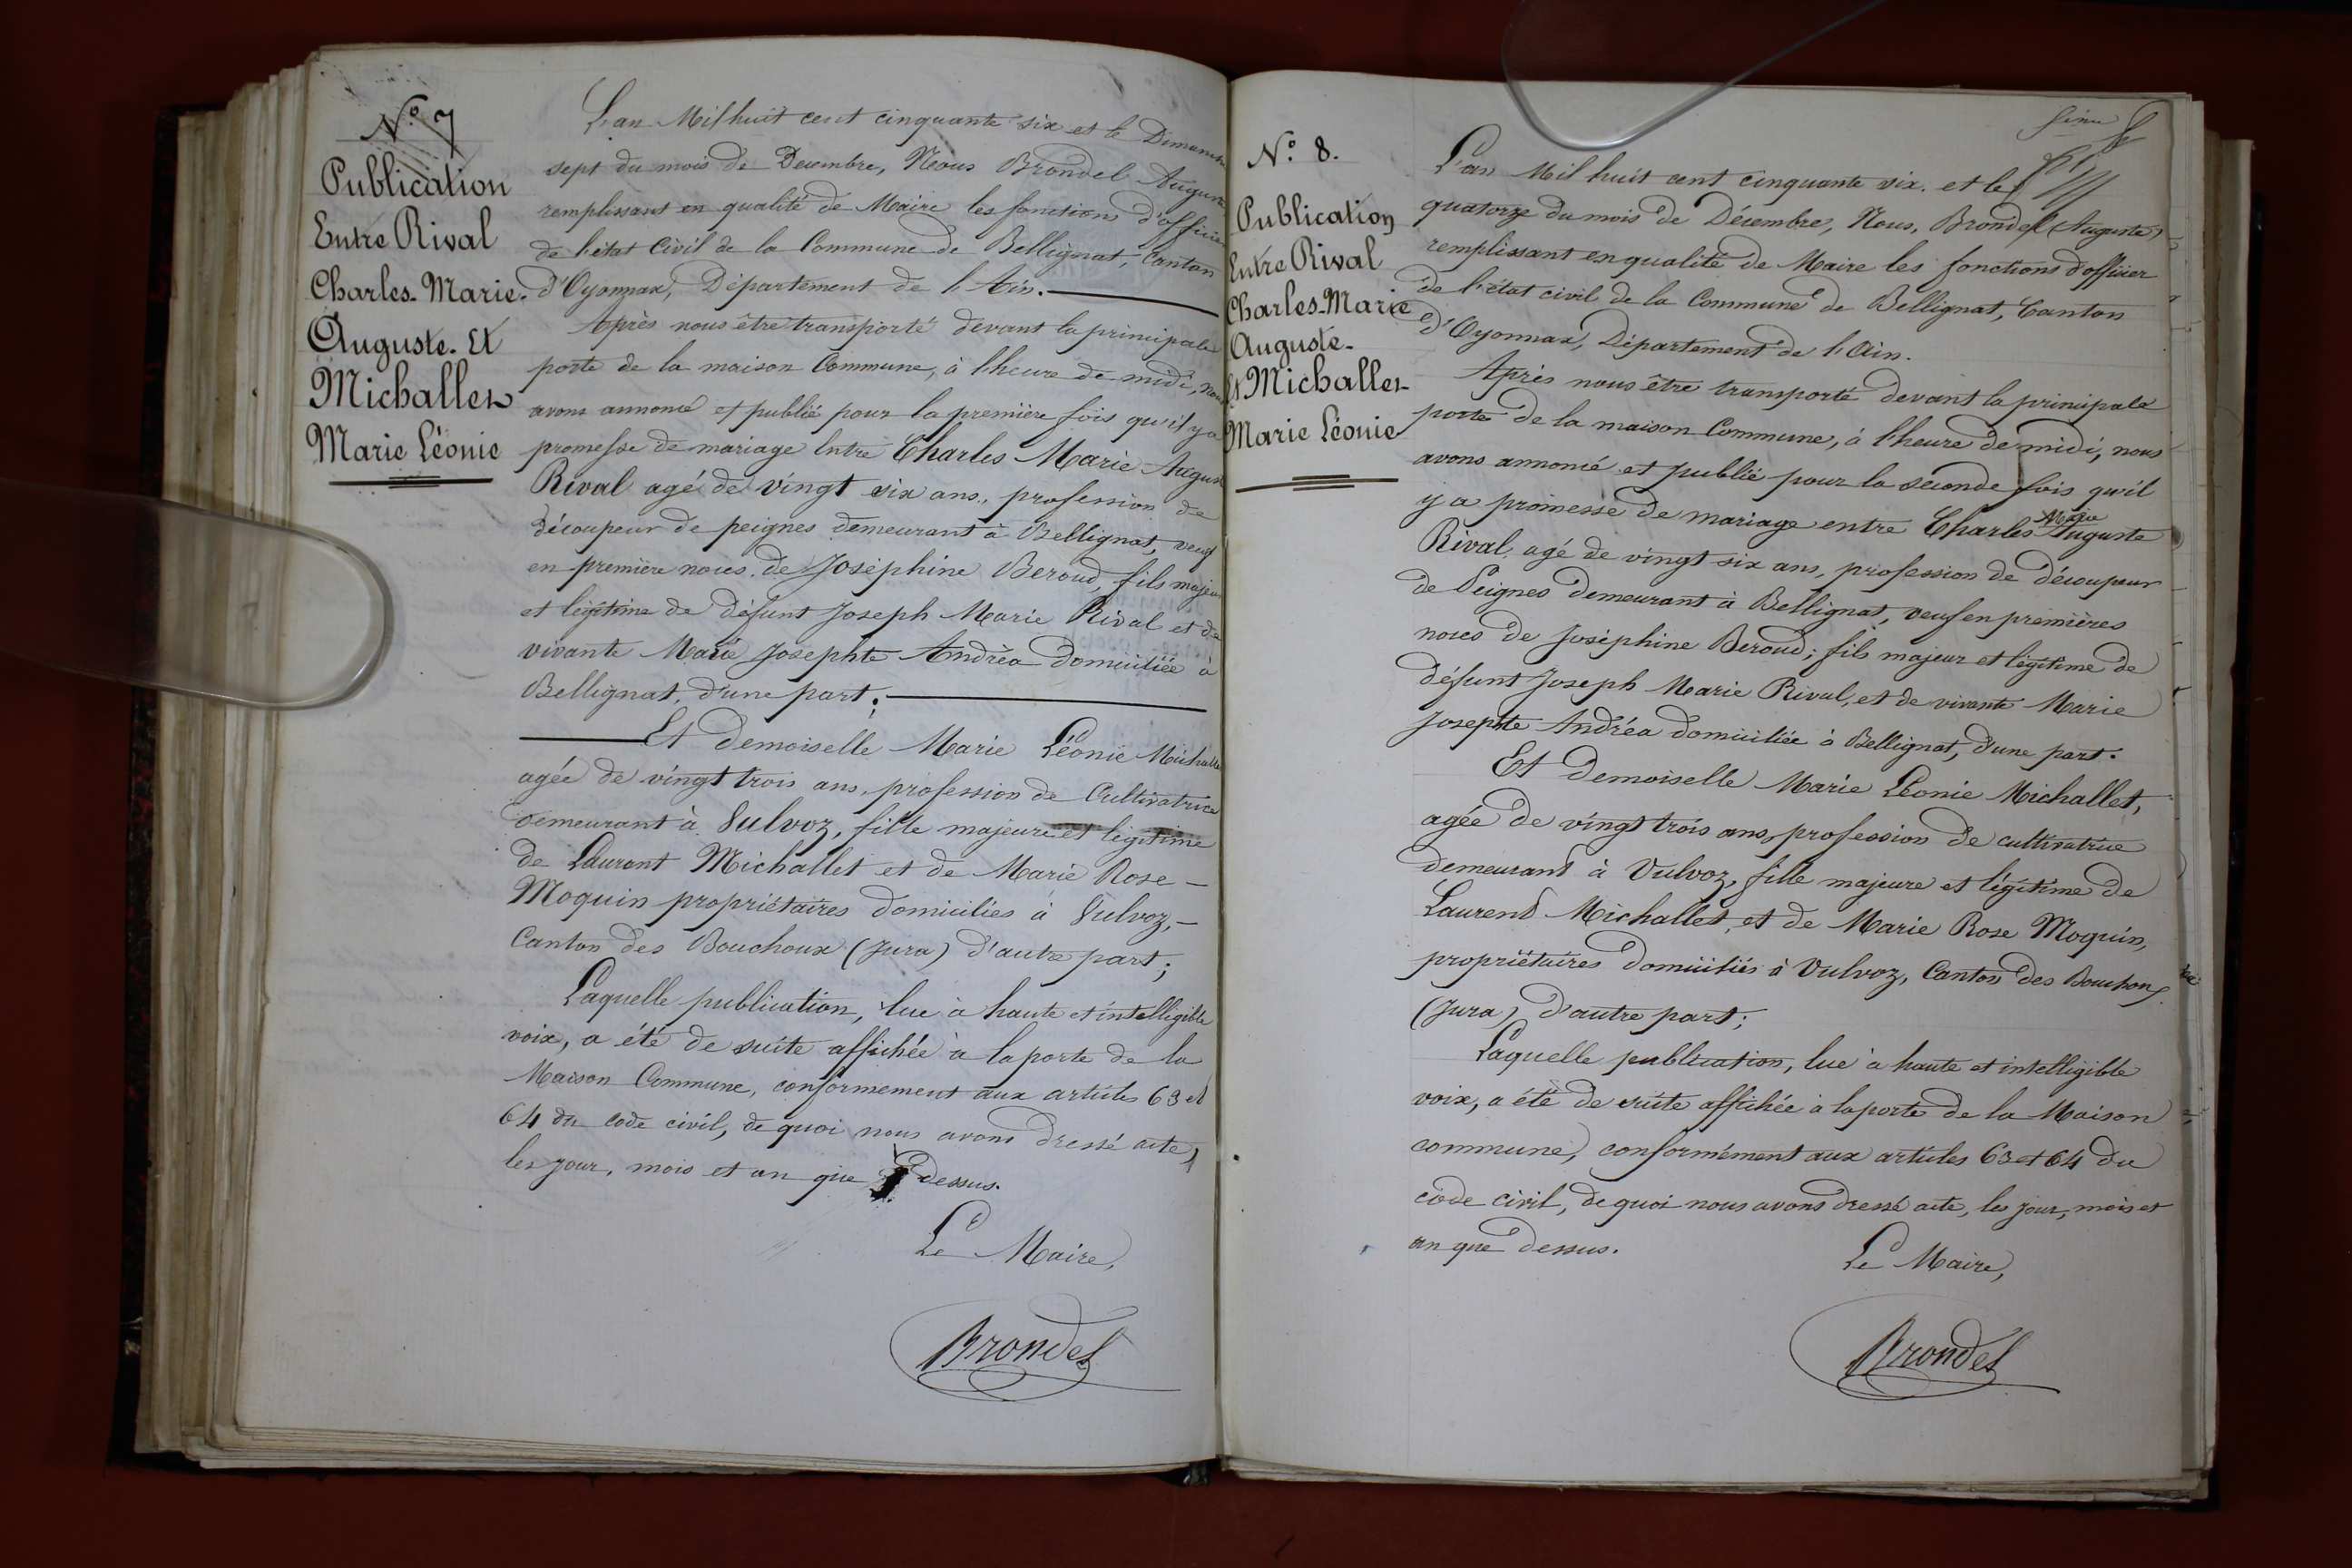 N.º 7
Publication
Entre Rival
Charles-Marie-
Auguste. Et
Michallet
Marie Léonie
L'an Mil huit cent cinquante six et le Dimanche
sept du mois de Decembre, Nous Brondel Auguste
remplissant en qualité de Maire les fonctions d'officier
de l'état Civil de la Commune de Bellignat, Canton
d'Oyonnax, Département de l'Ain.
Après nous être transporté devant la principale
porte de la maison Commune, à l'heure de midi, nous
avons annoncé et publié pour la première fois qu'il y a
promesse de mariage Entre Charles Marie Auguste
Rival agé de vingt six ans, profession de
découpeur de peignes demeurant à Bellignat, veuf
en première noces de Joséphine Beroud, fils majeur
et légitime de défunt Joseph Marie Rival et de
vivante Marie Josephte Andréa domiciliée à
Bellignat, d'une part;
Et Demoiselle Marie Léonie Michallet
agée de vingt trois ans, profession de Cultivatrice
demeurant à Vulvoz, fille majeure et légitime
de Laurent Michallet et de Marie Rose-
Moquin propriétaires domiciliés à Vulvoz,-
Canton des Bouchoux (Jura) d'autre part;
Laquelle publication, lue à haute et intelligible
voix, a été de suite affichée à la porte de la
Maison Commune, conformement aux articles 63 et
64 du code civil, de quoi nous avons dressé acte,
les jour, mois et an que dessus.
Le Maire,
Brondel
N.º 8.
Publication
Entre Rival
Charles-Marie
Auguste-
Et Michallet-
Marie Léonie
L'an Mil huit cent cinquante six. et le
quatorze du mois de Décembre, Nous, Brondel (Auguste)
remplissant en qualité de Maire les fonctions d'officier
de l'état civil de la Commune de Bellignat, Canton
d'Oyonnax, Département de l'Ain.
Après nous être transporté devant la principale
porte de la maison Commune, à l'heure de midi, nous
avons annoncé et publié pour la seconde fois qu'il
y a promesse de mariage entre Charles Marie Auguste
Rival, agé de vingt-six ans, profession de découpeur
de Peignes demeurant à Bellignat, veuf en premières
noces de Joséphine Beroud; fils majeur et légitime de
défunt Joseph Marie Rival, et de vivante Marie
Josephte Andréa domiciliée à Bellignat, d'une part.
Et Demoiselle Marie Léonie Michallet,
agée de vingt trois ans, profession de cultivatrice
demeurant à Vulvoz, fille majeure et légitime de
Laurent Michallet, et de Marie Rose Moquin,
propriétaires domiciliés à Vulvoz, Canton des Bouchoux
(Jura) d'autre part;
Laquelle publication, lue à haute et intelligible
voix, a été de suite affichée à la porte de la Maison
commune, conformément aux articles 63 et 64 du
code civil, de quoi nous avons dressé acte, les jour, mois et
an que dessus.
Le Maire,
Brondel